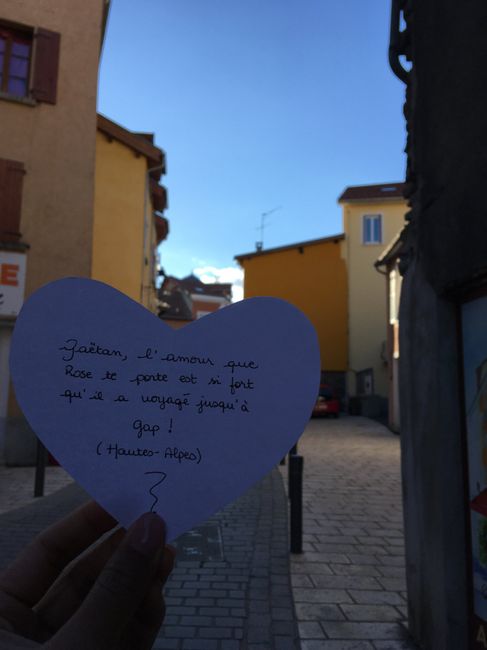 Gaëtan, l'amour que
Rose te porte est si fort
qu'il a voyagé jusqu'à
Gap !
(Hautes-Alpes)